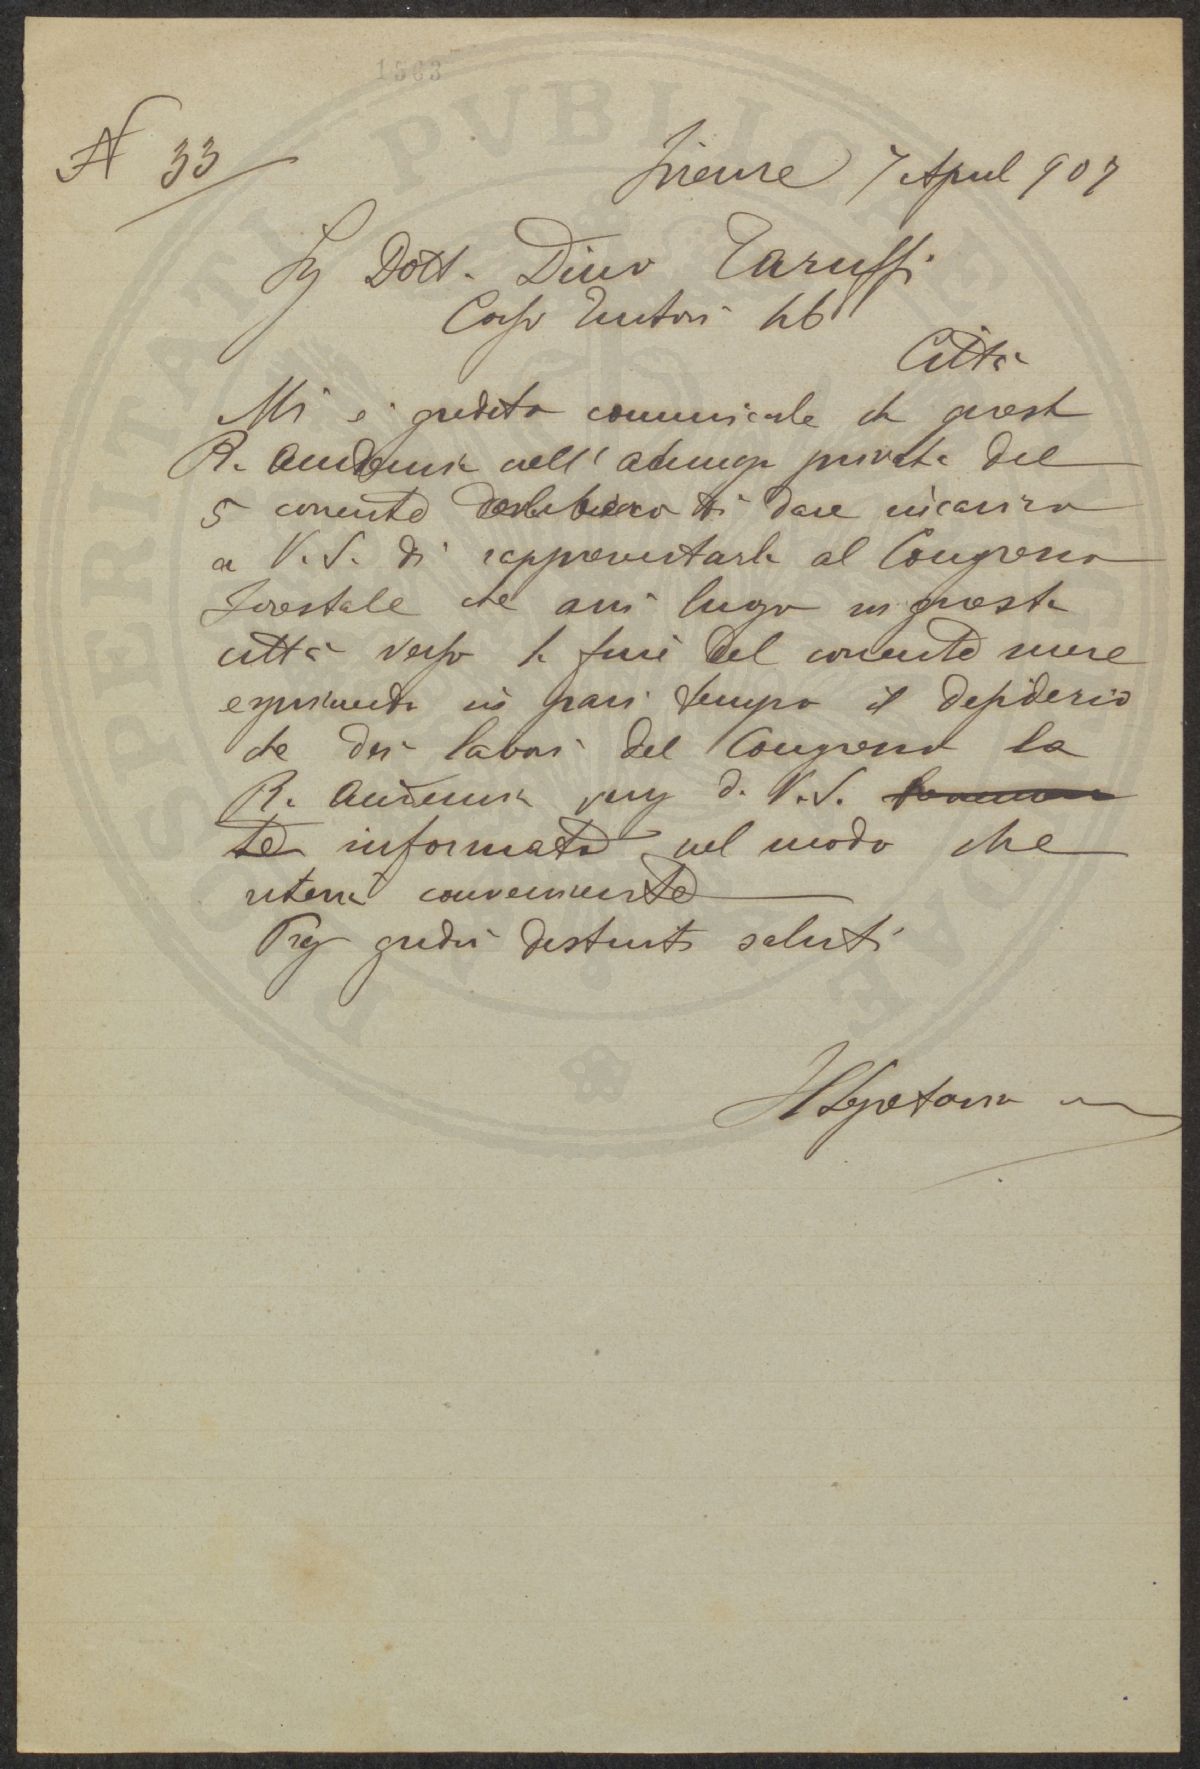 1563
N 33
Firenze 7 April 907
Sig Dott. Dino Taruffi
Corso Tintori
Città
Mi è gradito comunicarle che questa
R. Accademia nell' adunanza privata del
5 corrente deliberò di dare incarico
a V. S. di rappresentarla al Congresso
Forestale che avrà luogo in questa
città verso la fine del corrente mese
esprimendo in pari tempo il desiderio
che dei lavori del Congresso la
R. Accademia da V. S.
informata nel modo che
riterrà conveniente
Preg gradire distinti saluti
Il Segretario